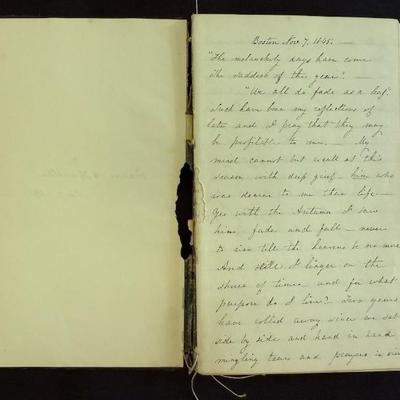 Boston Nov. 7, 1845. —
"The melancholy days have come
The saddest of the year". —
"We all do fade as a leaf."
Such have been my reflections of
late and I pray that they may
be profitable to me. — My
mind cannot but recall at this
season with deep grief — him who
was dearer to me than life —
Yes with the Autumn I saw
him, fade and fall — never
to rise till the heavens be no more
And still I linger on the
shores of time and for what
purpose do I live? Two years
have rolled away since we sat
side by side and hand in hand
mingling tears and prayers is over